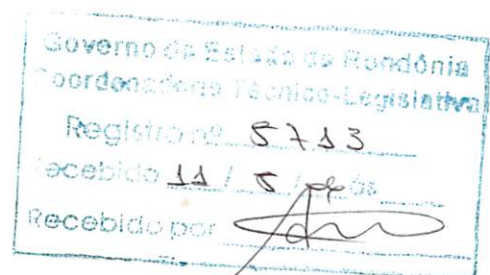 Governo do Estado de Rondônia
Coordenadoria Técnico-Legislativa
Registro nº 5713
Recebido 11 / 5 / às
Recebido por